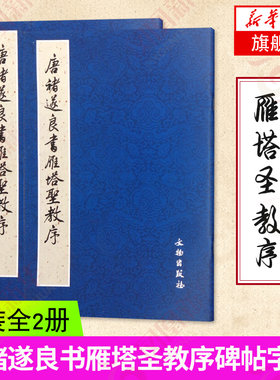 新華
旗舰
唐褚遂良書雁塔聖教序
唐褚遂良書雁塔聖教序
文物出版社
雁塔圣教序
装全2册
褚遂良书雁塔圣教序碑帖字